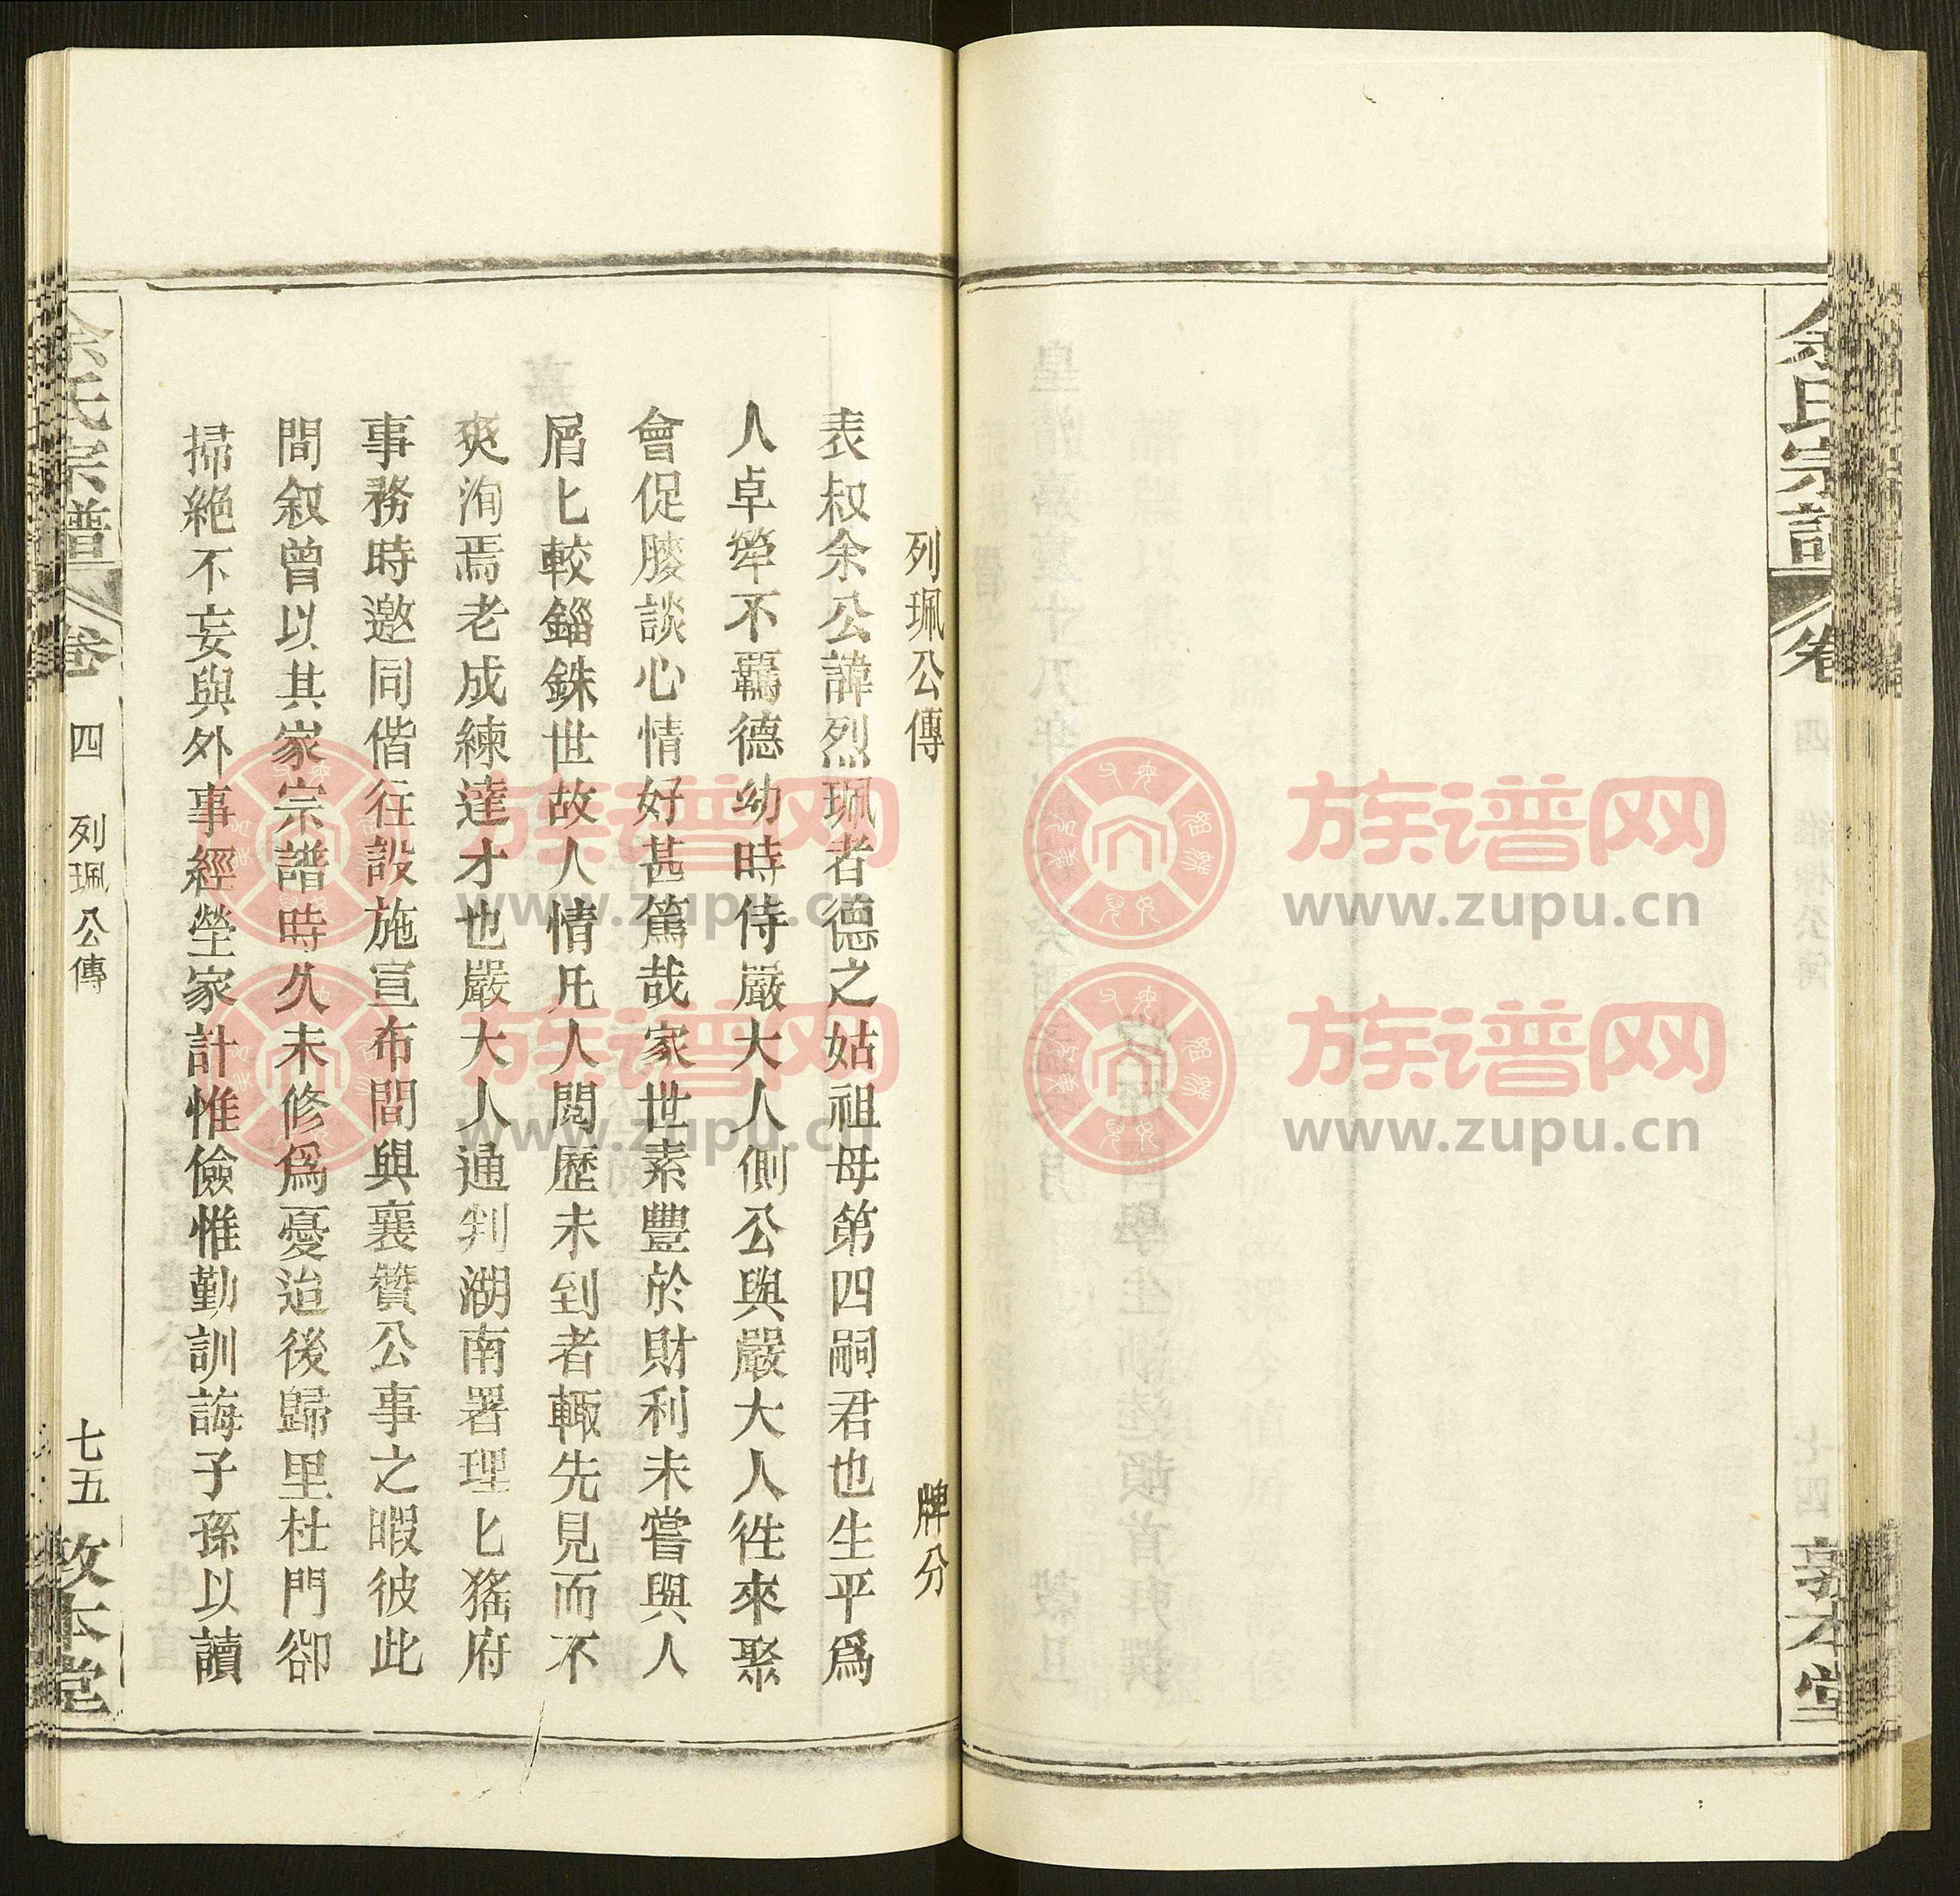 余氏宗譜
卷
敦本堂
列珮公傳 牌分
表叔余公諱烈珮者德之姑祖母第四嗣君也生平爲
人卓犖不羈德幼時侍嚴大人側公與嚴大人徃來聚
會促膝談心情好甚篤哉家世素豐於財利未嘗與人
屑匕較錙銖世故人情凡人閱歷未到者輙先見而不
爽洵焉老成練達才也嚴大人通判湖南署理匕猺府
事務時邀同偕往設施宣布間與襄贊公事之暇彼此
間叙曾以其家宗譜時久未修爲憂迨後歸里杜門卻
掃絶不妄與外事經塋家計惟儉惟勤訓誨子孫以讀
余氏宗譜
卷
四
列珮公傳
七五
敦本堂
族谱网
www.zupu.cn
族谱网
www.zupu.cn
族谱网
www.zupu.cn
族谱网
www.zupu.cn